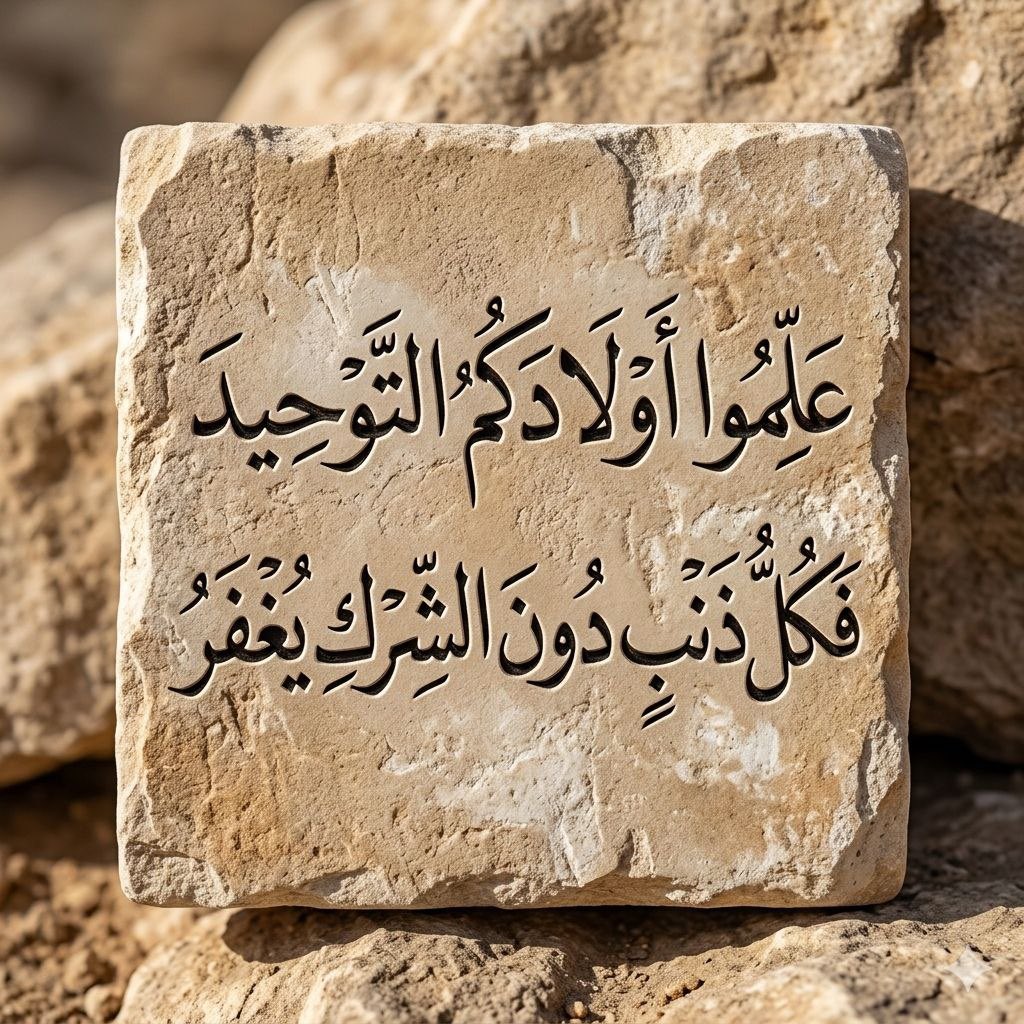 عَلِّمُوا أَوْلَادَكُمُ التَّوْحِيدَ
فَكُلُّ ذَنْبٍ دُونَ الشِّرْكِ يُغْفَرُ